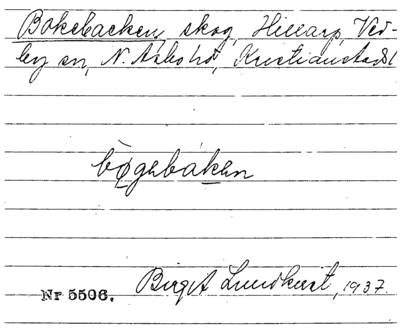 Bokebacken, skog, Hillarp, Ved-
by sn, N. Åsbo hd, Kristianstads l
bøgabakan
Birgit Lundkvist, 1937.
Nr 5506.